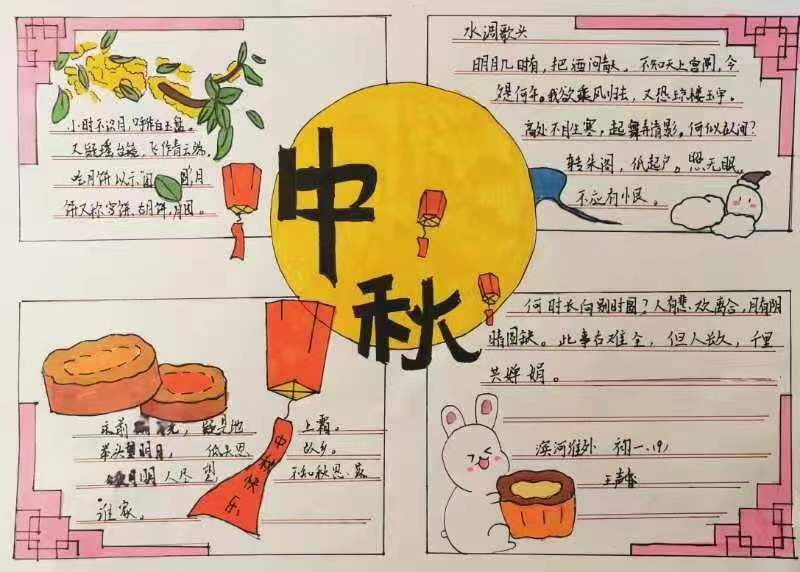 中秋
小时不识月,呼作白玉盘。
又疑瑶台镜,飞作青云端。
吃月饼以示团 月
饼又称 饼、胡月饼,月团。
水调歌头
明月几时有,把酒问青 。不知天上宫阙,今
夕是何年。我欲乘风归去,又恐琼楼玉宇。
高处不胜寒,起舞弄清影。何似在人间?
转朱阁,低起户。照无眠
不应有恨。
何时长向别时圆?人有悲欢离合,月有阴
晴圆缺。此事古难全,但人 久,千里
共婵娟。
床前 光,疑是地 上霜。
举头望明月, 低头思 故乡。
明 人尽望, 不知秋思 落
谁家。
中秋快乐
滨河 外 初一、(9)
王声